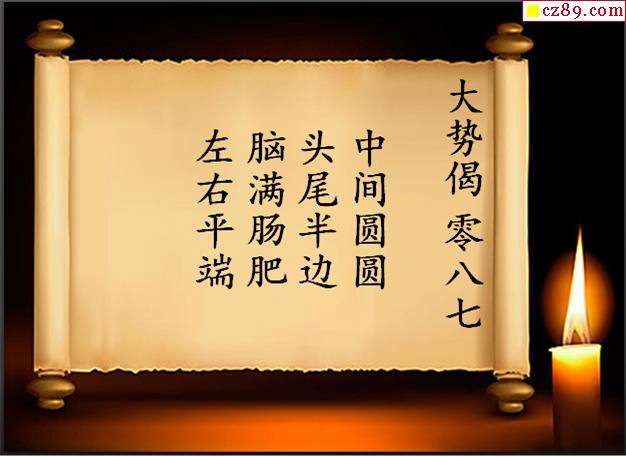 cz89.com
大势偈 零八七
中间圆圆
头尾半边
脑满肠肥
左右平端